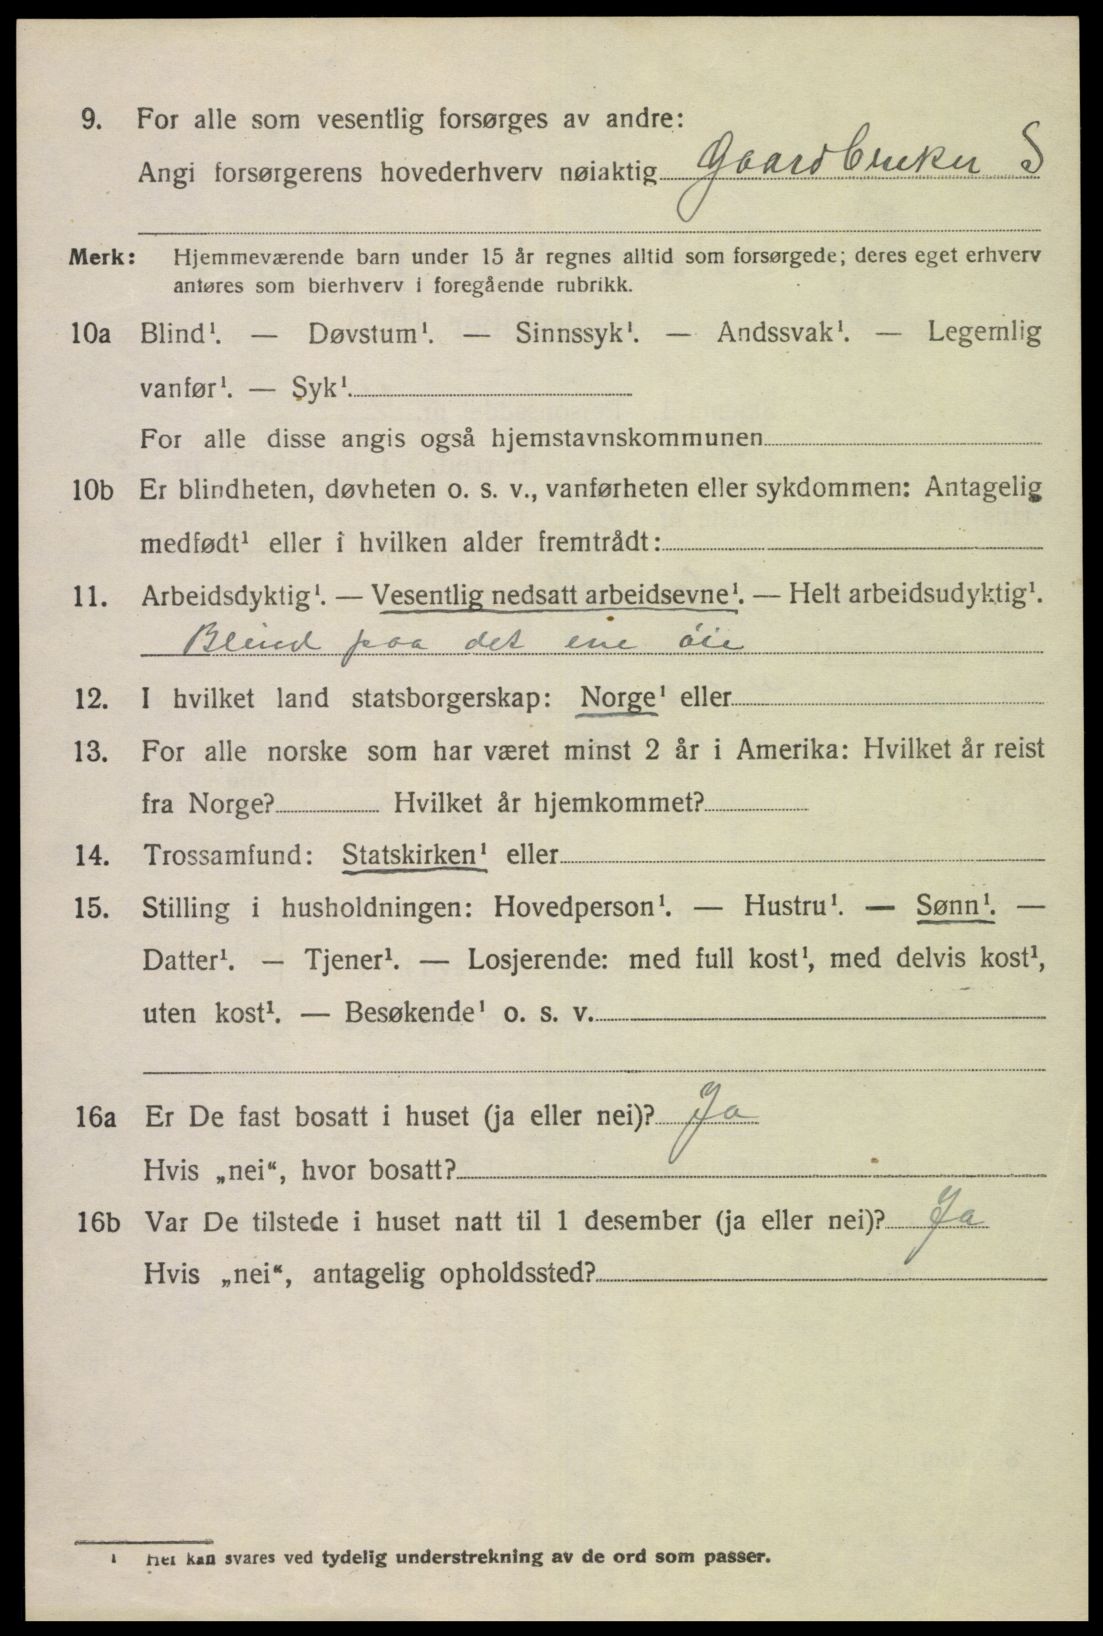 9. For alle som vesentlig forsørges av andre:
Angi forsørgerens hovederhverv nøiaktig Gaardbruker S
Merk: Hjemmeværende barn under 15 år regnes alltid som forsørgede; deres eget erhverv
anføres som bierhverv i foregående rubrikk.
10a Blind¹. — Døvstum¹. — Sinnssyk¹. — Andssvak¹. — Legemlig
vanfør¹. — Syk¹.
For alle disse angis også hjemstavnskommunen
10b Er blindheten, døvheten o. s. v., vanførheten eller sykdommen: Antagelig
medfødt¹ eller i hvilken alder fremtrådt:
11. Arbeidsdyktig¹. — Vesentlig nedsatt arbeidsevne¹. — Helt arbeidsudyktig¹.
Blind paa det ene öie
12. I hvilket land statsborgerskap: Norge¹ eller
13. For alle norske som har været minst 2 år i Amerika: Hvilket år reist
fra Norge? Hvilket år hjemkommet?
14. Trossamfund: Statskirken¹ eller
15. Stilling i husholdningen: Hovedperson¹. — Hustru¹. — Sønn¹. —
Datter¹. — Tjener¹. — Losjerende: med full kost¹, med delvis kost¹,
uten kost¹. — Besøkende¹ o. s. v.
16a Er De fast bosatt i huset (ja eller nei)? Ja
Hvis „nei“, hvor bosatt?
16b Var De tilstede i huset natt til 1 desember (ja eller nei)? Ja
Hvis „nei“, antagelig opholdssted?
¹ Her kan svares ved tydelig understrekning av de ord som passer.